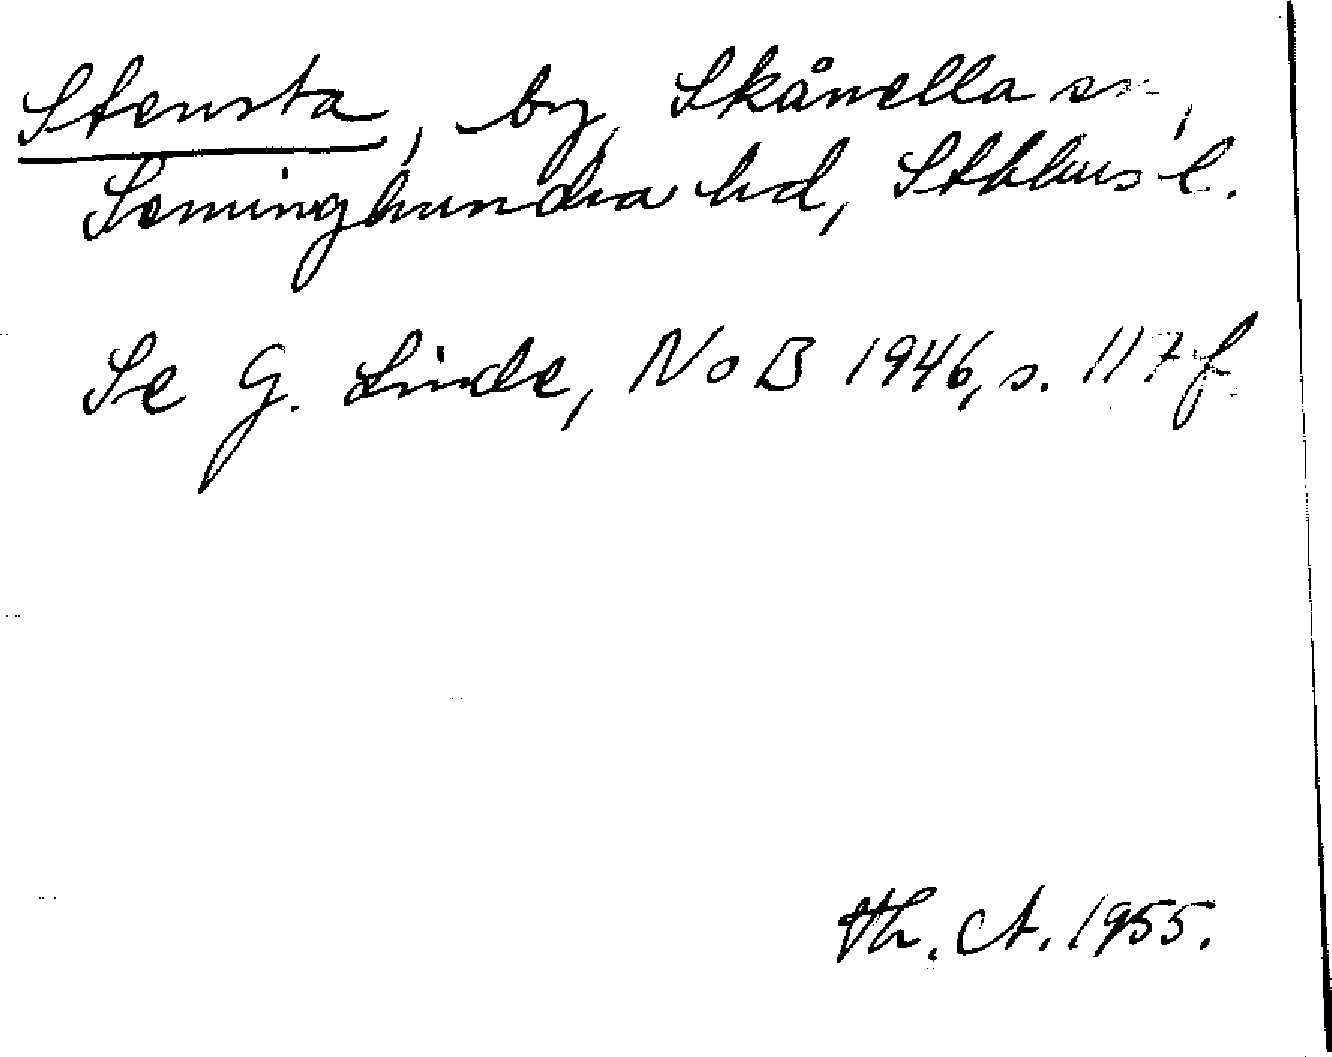 Stensta, by, Skånella sn,
Seminghundra hd, Sthlms l.
Se G. Linde, NoB 1946, s. 117 f.
Th. A. 1955.